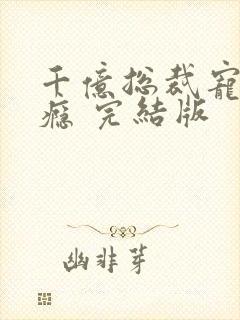 千億總裁寵
癮 完結版
幽非芽